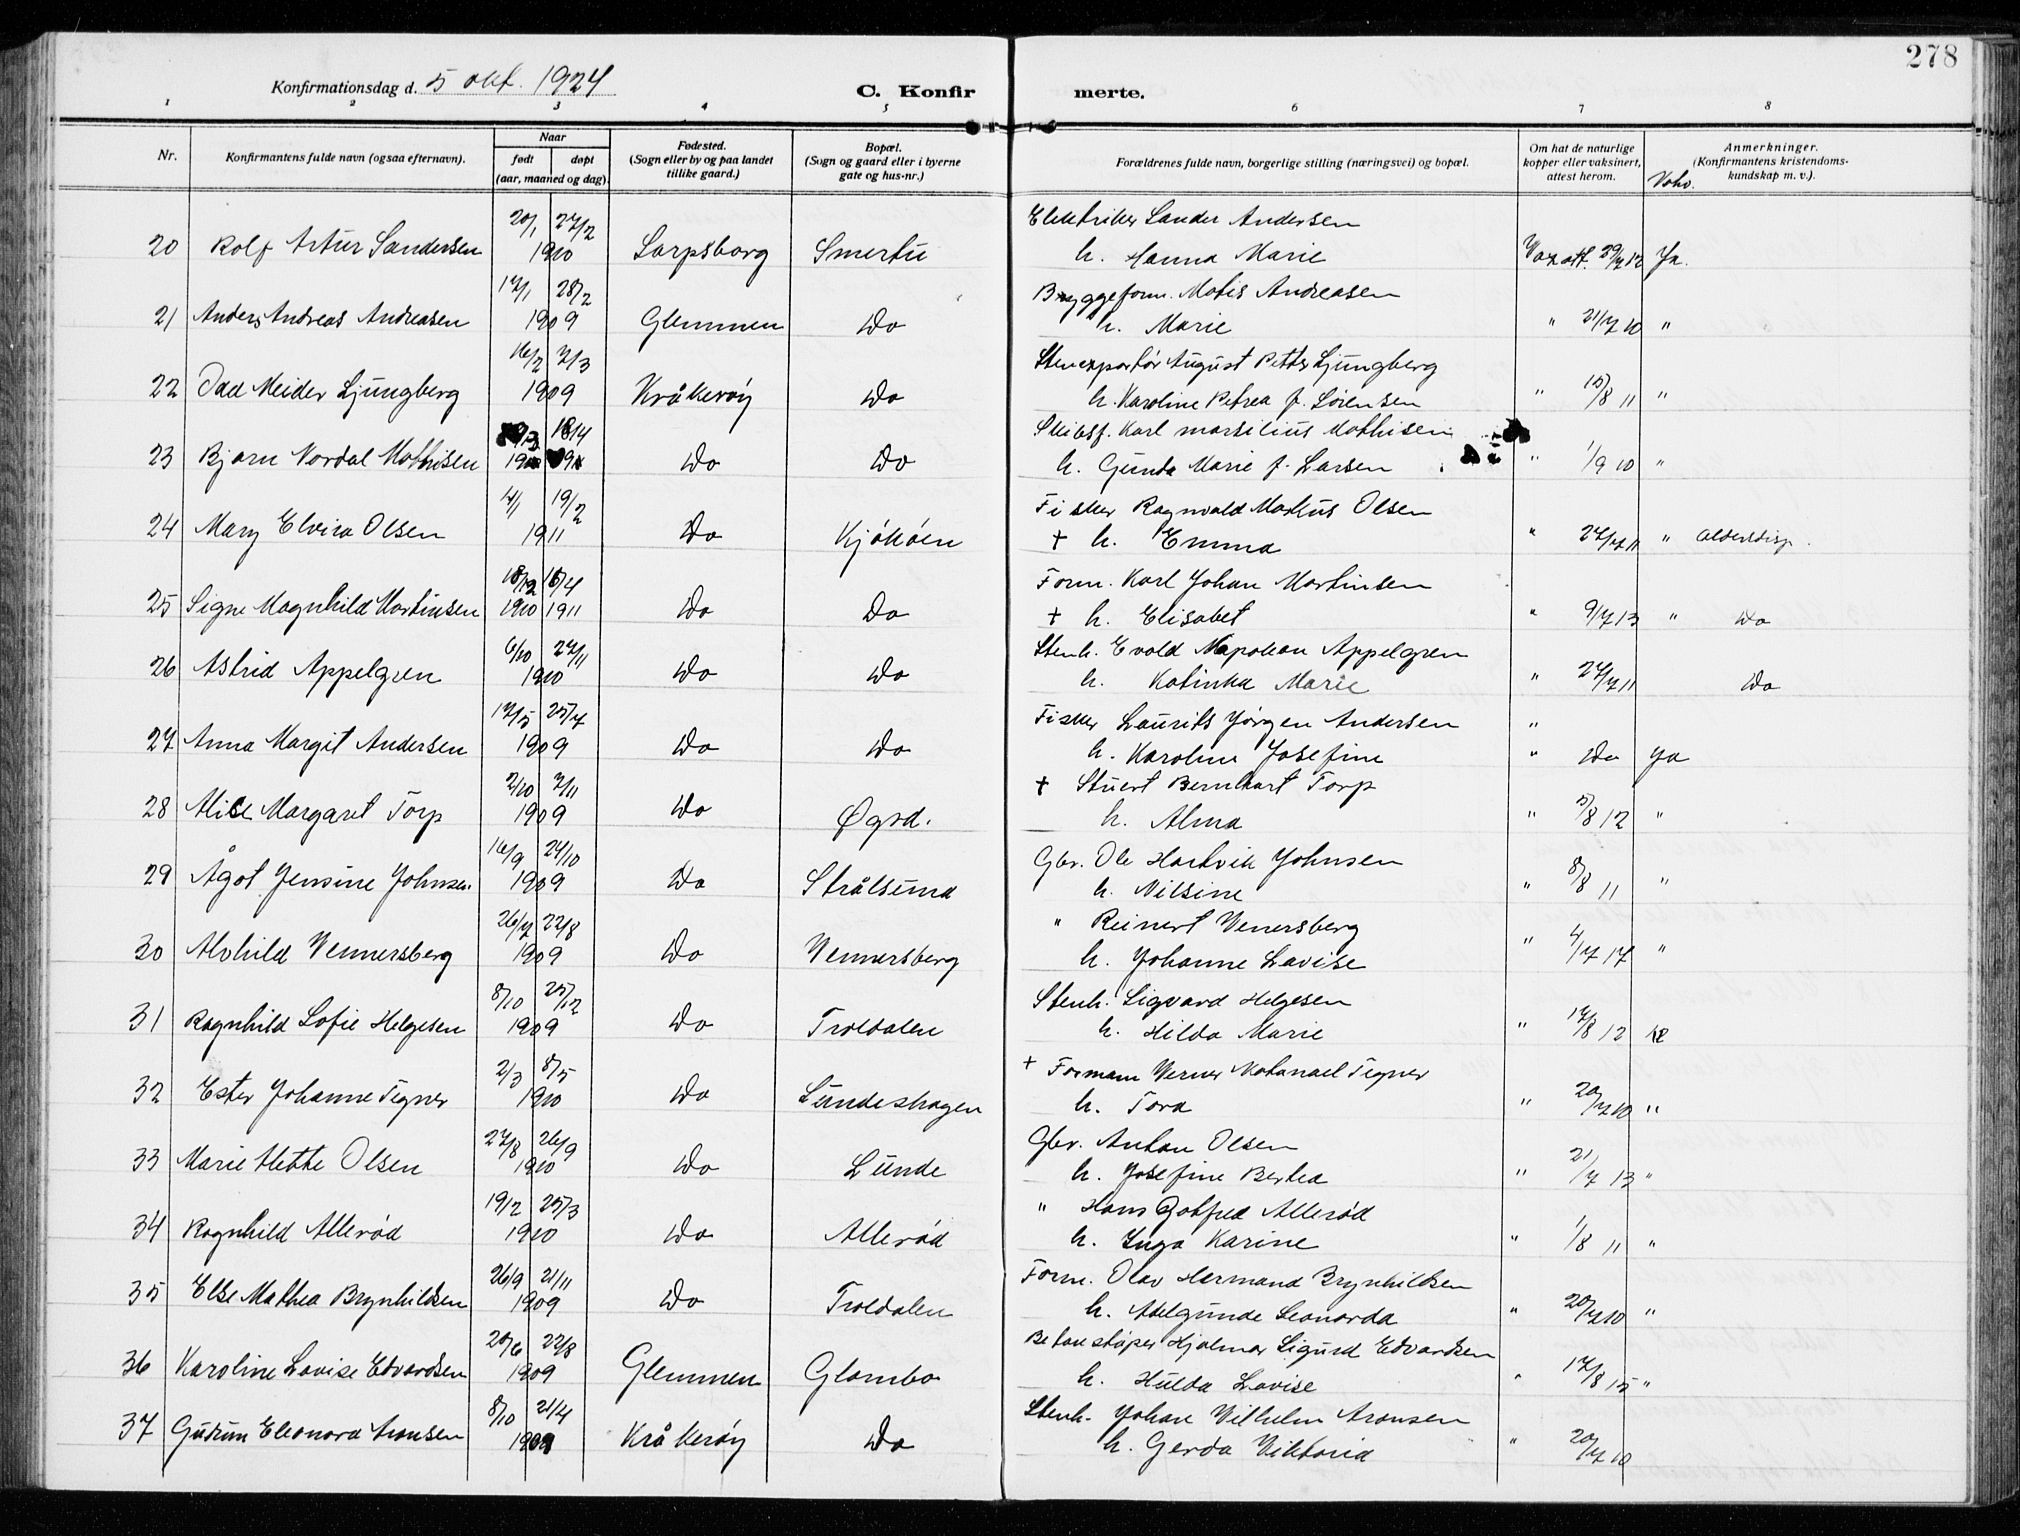 278
Konfirmationsdag d. 5 okt. 1924
C. Konfir merte.
1 2 3 4 5 6 7 8
Nr.
Konfirmantens fulde navn (ogsaa efternavn).
Naar
født døpt
(aar, maaned og dag).
Fødested.
(Sogn eller by og paa landet
tillike gaard.)
Bopæl.
(Sogn og gaard eller i byerne
gate og hus-nr.)
Forældrenes fulde navn, borgerlige stilling (næringsvei) og bopæl.
Om hat de naturlige
kopper eller vaksinert,
attest herom.
Anmerkninger.
(Konfirmantens kristendoms-
kundskap m. v.).
20/1 27/2 Elektriker Sander Andersen
20 Rolf Artur Sandersen 1910 Sarpsborg Smertu h. Hanna Marie Vaz att. 29/7 12 Ja.
17/1 28/2 Bryggeform. Matis Andreasen
21 Anders Andreas Andreasen 1909 Glemmen Do h. Marie " 21/7 10 "
16/2 7/3 Stenexportør August Petter Ljungberg
22 Odd Meider Ljungberg 1909 Kråkerøy Do h. Karoline Petrea f. Sørensen " 15/8 11 "
Skibsf. Karl Marsilius Mathisen
23 Bjarn Nordal Mathisen Do Do h. Gunda Marie f. Larsen " 1/9 10 "
4/1 19/2 Fisker Ragnvald Markus Olsen
24 Mary Elvira Olsen 1911 Do Kjøkøen + h. Emma " 27/7 11 " Aldersdisp.
18/12 16/4 Form. Karl Johan Martinsen
25 Signe Magnhild Martinsen 1910 1911 Do Do + h. Elisabet " 9/7 13 " Do
6/10 27/11 Stenh. Evald Napoleon Appelgren
26 Astrid Appelgren 1910 Do Do h. Katinka Marie " 27/7 11 Do
17/5 25/7 Fisker Laurits Jørgen Andersen "
27 Anna Margit Andersen 1909 Do Do h. Karoline Josefine " Do Ja
2/10 7/11 + Stuert Bernhart Torp
28 Alice Margaret Torp 1909 Do Øgrd. h. Alma " 5/8 12 "
16/9 24/10 Gbr. Ole Hartvik Johnsen
29 Ågot Jensine Johnsen 1909 Do Strålsund h. Nilsine " 8/8 11 "
26/7 22/8 " Reinert Venersberg
30 Alvhild Vennersberg 1909 Do Vennersberg h. Johanne Lavise " 4/7 17 "
8/10 25/12 Stenh. Sigvard Helgesen
31 Ragnhild Sofie Helgesen 1909 Do Troldalen h. Hilda Marie " 17/8 12
2/3 8/5 + Formann Verner Natanael Tegner
32 Ester Johanne Tegner 1910 Do Lundeshagen h. Tora " 20/7 10 "
27/8 26/9 Gbr. Anton Olsen
33 Marie Mette Olsen 1910 Do Lunde h. Josefine Bertea " 21/7 13 "
19/2 25/3 " Hans Gotfred Allerød
34 Ragnhild Allerød 1910 Do Allerød h. Inga Karine " 1/8 11 "
26/9 21/11 Form. Olav Hermand Brynhildsen
35 Else Mathea Brynhildsen 1909 Do Troldalen h. Adelgunde Leonarda " 20/7 10 "
20/6 22/8 Betonstøper Hjalmar Sigurd Edvardsen
36 Karoline Lovise Edvardsen 1909 Glemmen Glombo h. Hulda Lovise " 17/8 15 "
8/10 21/4 Stenh. Johan Vilhelm Aronsen
37 Gudrun Eleonora Aronsen Kråkerøy Do h. Gerda Viktoria " 20/7 10